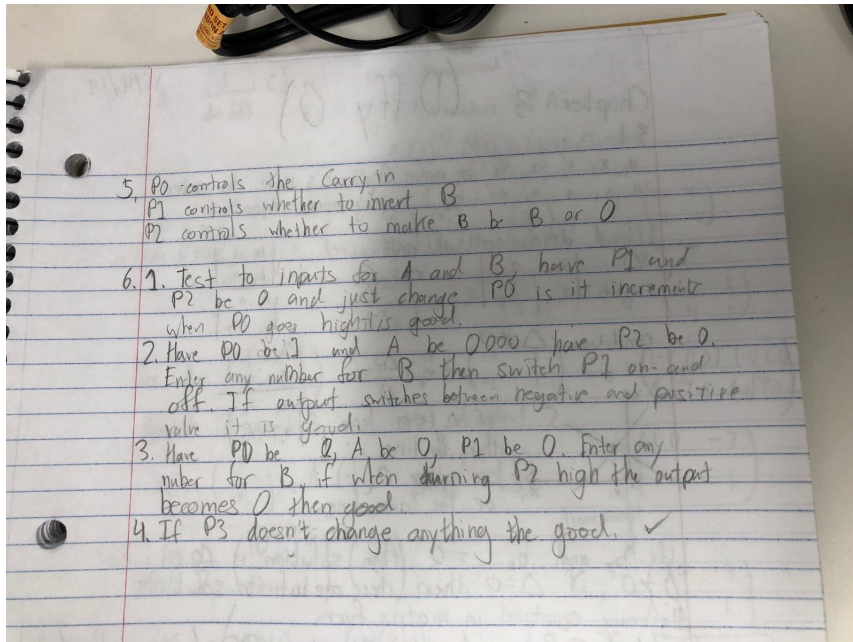 5. P0 controls the Carry in
P1 controls whether to invert B
P2 controls whether to make B be B or 0
6. 1. Test to inputs for A and B, have P1 and
P2 be 0 and just change P0 is it increments
when P0 goes high it is good.
2. Have P0 be 1 and A be 0000 have P2 be 0.
Enter any number for B then switch P1 on and
off. If output switches between negative and positive
value it is good.
3. Have P0 be 0, A be 0, P1 be 0. Enter any
nuber for B, if when turning P2 high the output
becomes 0 then good.
4. If P3 doesn't change anything the good. ✓